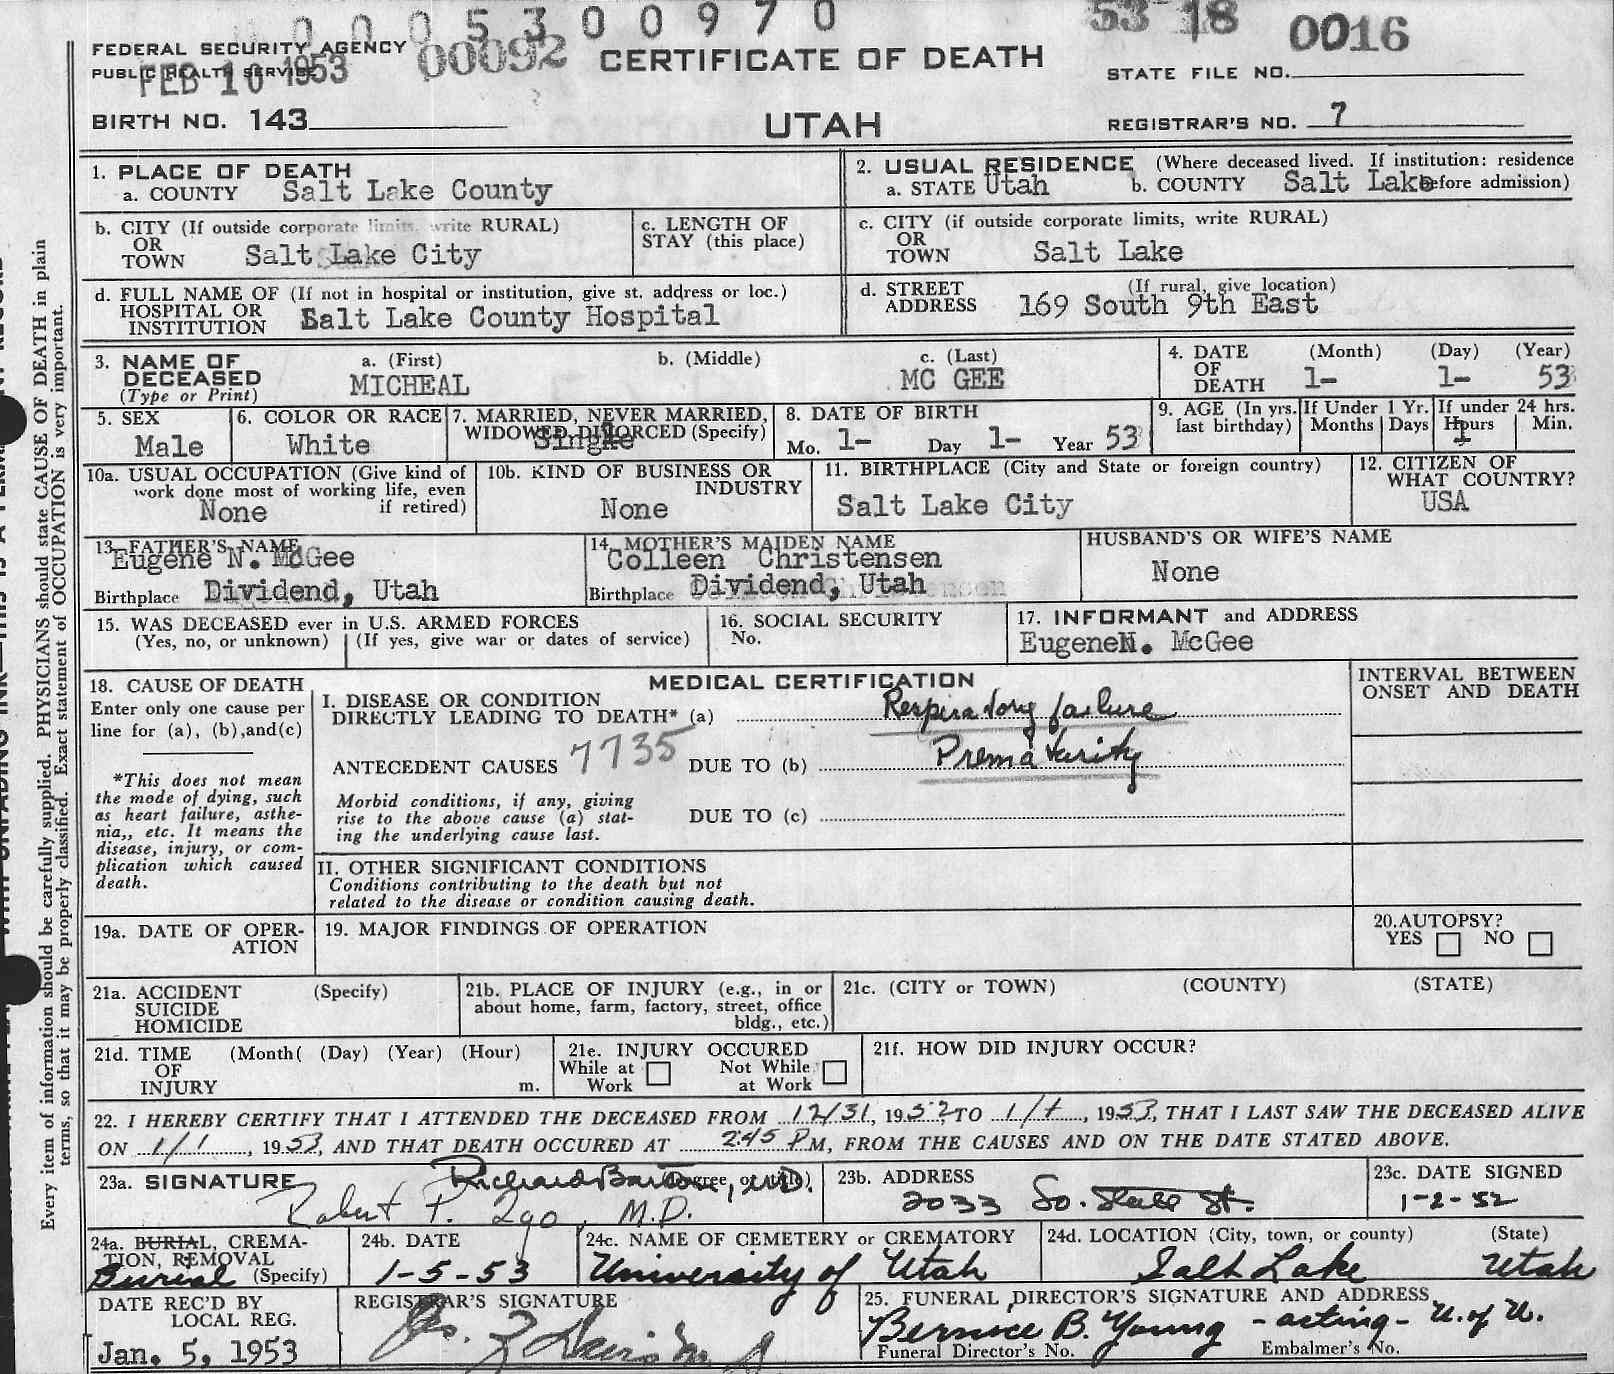 0 0 0 5 3 0 0 9 7 0
53 18 0016
FEDERAL SECURITY AGENCY 00092 CERTIFICATE OF DEATH
PUBLIC HEALTH SERVICE STATE FILE NO.
FEB 10 1953
BIRTH NO. 143 UTAH REGISTRAR'S NO. 7
1. PLACE OF DEATH
a. COUNTY Salt Lake County
2. USUAL RESIDENCE (Where deceased lived. If institution: residence before admission)
a. STATE Utah b. COUNTY Salt Lake
b. CITY (If outside corporate limits, write RURAL)
OR
TOWN Salt Lake City
c. LENGTH OF
STAY (this place)
c. CITY (if outside corporate limits, write RURAL)
OR
TOWN Salt Lake
d. FULL NAME OF (If not in hospital or institution, give st. address or loc.)
HOSPITAL OR
INSTITUTION Salt Lake County Hospital
d. STREET (If rural, give location)
ADDRESS 169 South 9th East
3. NAME OF DECEASED
(Type or Print)
a. (First) b. (Middle) c. (Last)
MICHEAL MC GEE
4. DATE OF DEATH (Month) (Day) (Year)
1- 1- 53
5. SEX
Male
6. COLOR OR RACE
White
7. MARRIED, NEVER MARRIED,
WIDOWED DIVORCED (Specify)
Single
8. DATE OF BIRTH
Mo. 1- Day 1- Year 53
9. AGE (In yrs. last birthday)
If Under 1 Yr.
Months Days
If under 24 hrs.
Hours Min.
1
10a. USUAL OCCUPATION (Give kind of
work done most of working life, even
if retired)
None
10b. KIND OF BUSINESS OR
INDUSTRY
None
11. BIRTHPLACE (City and State or foreign country)
Salt Lake City
12. CITIZEN OF
WHAT COUNTRY?
USA
13. FATHER'S NAME
Eugene N. McGee
Birthplace Dividend, Utah
14. MOTHER'S MAIDEN NAME
Colleen Christensen
Birthplace Dividend, Utah
HUSBAND'S OR WIFE'S NAME
None
15. WAS DECEASED ever in U.S. ARMED FORCES
(Yes, no, or unknown) (If yes, give war or dates of service)
16. SOCIAL SECURITY
No.
17. INFORMANT and ADDRESS
EugeneN. McGee
18. CAUSE OF DEATH
Enter only one cause per
line for (a), (b),and(c)
*This does not mean
the mode of dying, such
as heart failure, asthe-
nia,, etc. It means the
disease, injury, or com-
plication which caused
death.
MEDICAL CERTIFICATION
I. DISEASE OR CONDITION
DIRECTLY LEADING TO DEATH* (a) Respiratory failure
ANTECEDENT CAUSES 7735 DUE TO (b) Prematurity
Morbid conditions, if any, giving
rise to the above cause (a) stat-
ing the underlying cause last.
DUE TO (c)
II. OTHER SIGNIFICANT CONDITIONS
Conditions contributing to the death but not
related to the disease or condition causing death.
INTERVAL BETWEEN
ONSET AND DEATH
19a. DATE OF OPER-
ATION
19. MAJOR FINDINGS OF OPERATION
20. AUTOPSY?
YES NO
21a. ACCIDENT (Specify)
SUICIDE
HOMICIDE
21b. PLACE OF INJURY (e.g., in or
about home, farm, factory, street, office
bldg., etc.)
21c. (CITY or TOWN) (COUNTY) (STATE)
21d. TIME (Month( (Day) (Year) (Hour)
OF
INJURY m.
21e. INJURY OCCURED
While at Work Not While at Work
21f. HOW DID INJURY OCCUR?
22. I HEREBY CERTIFY THAT I ATTENDED THE DECEASED FROM 12/31, 1952 TO 1/1, 1953, THAT I LAST SAW THE DECEASED ALIVE
ON 1/1, 1953, AND THAT DEATH OCCURED AT 2:45 P M, FROM THE CAUSES AND ON THE DATE STATED ABOVE.
23a. SIGNATURE (Degree, or title)
Richard Barton, M.D.
Robert P. , M.D.
23b. ADDRESS
2033 So. State St.
23c. DATE SIGNED
1-2-52
24a. BURIAL, CREMA-
TION, REMOVAL
(Specify)
Burial
24b. DATE
1-5-53
24c. NAME OF CEMETERY or CREMATORY
University of Utah
24d. LOCATION (City, town, or county) (State)
Salt Lake Utah
DATE REC'D BY
LOCAL REG.
Jan. 5, 1953
REGISTRAR'S SIGNATURE
25. FUNERAL DIRECTOR'S SIGNATURE AND ADDRESS
Bernice B. Young - acting - U. of U.
Funeral Director's No. Embalmer's No.
Every item of information should be carefully supplied. PHYSICIANS should state CAUSE OF DEATH in plain
terms, so that it may be properly classified. Exact statement of OCCUPATION is very important.